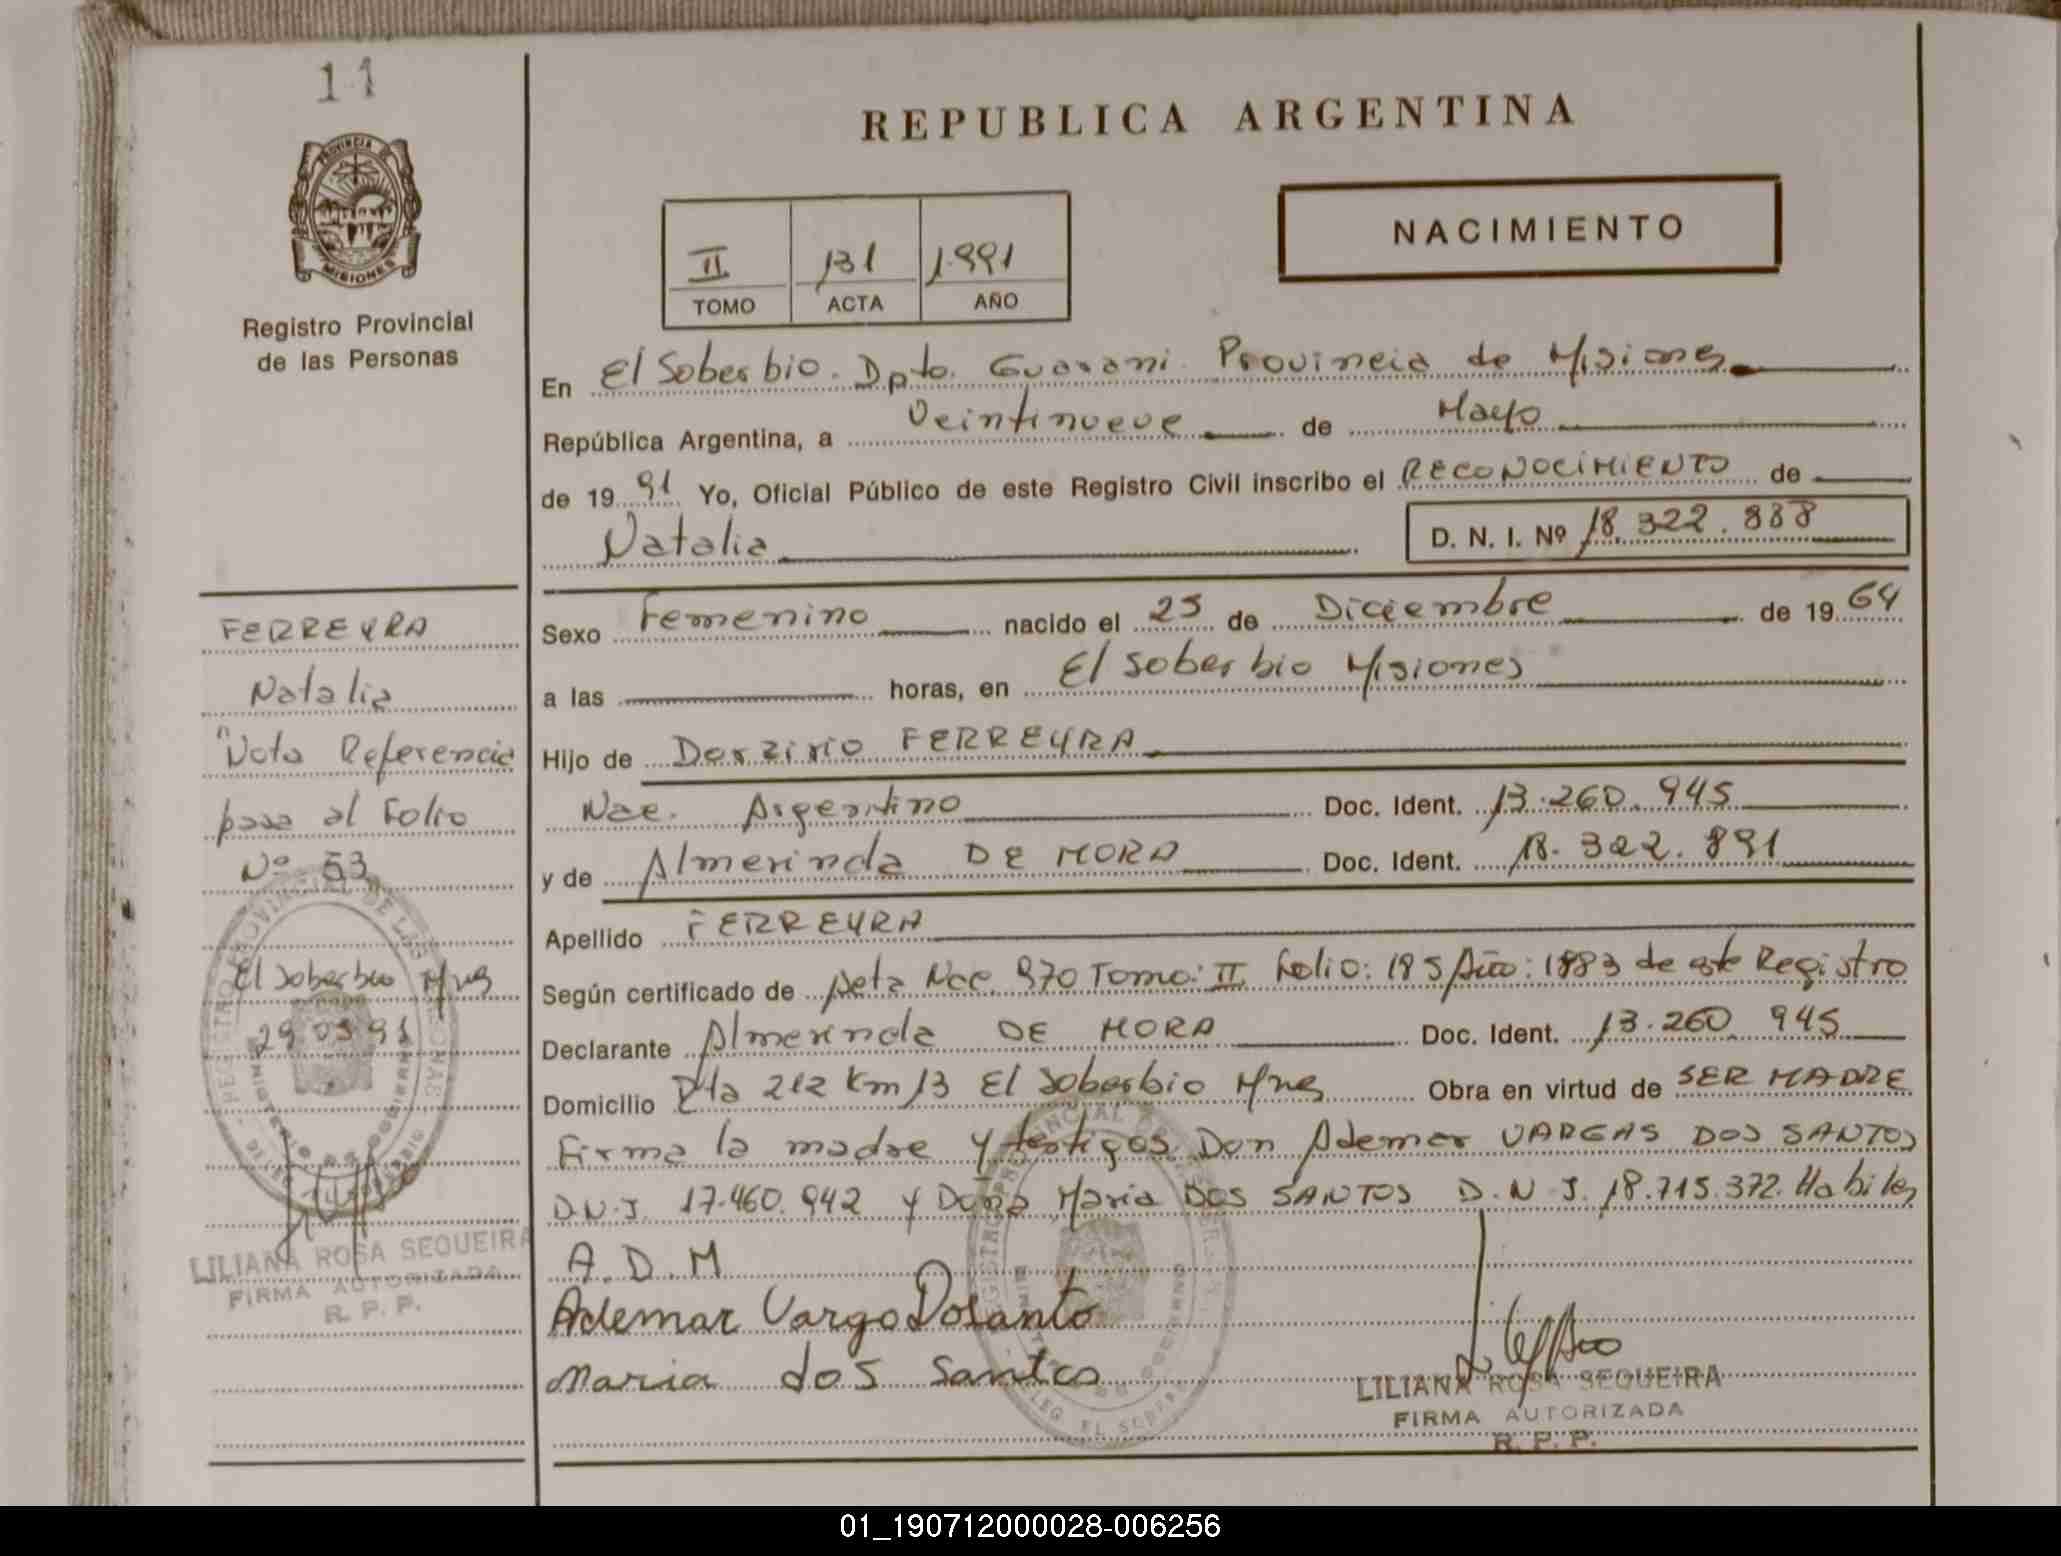 11
PROVINCIA DE
MISIONES
Registro Provincial
de las Personas
REPUBLICA ARGENTINA
NACIMIENTO
II 131 1991
TOMO ACTA AÑO
En El Soberbio. Dpto. Guarani. Provincia de Misiones
República Argentina, a Veintinueve de Mayo
de 19 91 Yo, Oficial Público de este Registro Civil inscribo el RECONOCIMIENTO de
Natalia D. N. I. Nº 18.322.888
Sexo Femenino nacido el 25 de Diciembre de 19 64
a las horas, en El Soberbio Misiones
Hijo de Dorzirio FERREYRA
Nac. Argentino Doc. Ident. 13.260.945
y de Almerinda DE MORA Doc. Ident. 18.322.891
Apellido FERREYRA
Según certificado de Acta Nac. 970 Tomo: II Folio: 185 Año: 1983 de este Registro
Declarante Almerinda DE MORA Doc. Ident. 13.260.945
Domicilio Rta 212 Km 13 El Soberbio Mnes Obra en virtud de SER MADRE
Firma la madre y testigos Don Ademar VARGAS DOS SANTOS
D.N.I. 17.460.942 y Doña Maria DOS SANTOS D.N.I. 18.715.372. Habiles
A.D.M
Ademar Vargo Dosanto
Maria dos Santos
LILIANA ROSA SEQUEIRA
FIRMA AUTORIZADA
R. P. P.
FERREYRA
Natalia
"Nota Referencia
pasa al Folio
Nº 53
El Soberbio Mnes
29 05 91
LILIANA ROSA SEQUEIRA
FIRMA AUTORIZADA
R. P. P.
01_190712000028-006256